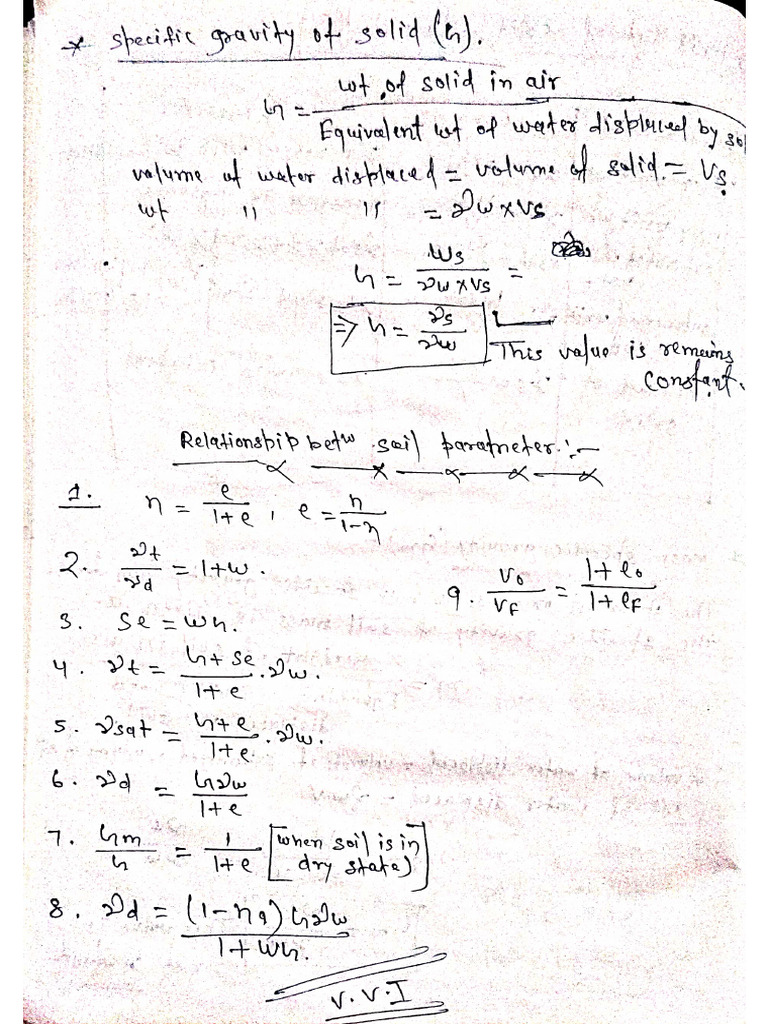 * Specific gravity of solid (G).
G = wt of solid in air / Equivalent wt of water displaced by sol
volume of water displaced = volume of solid = Vs.
wt " " = γw × Vs.
G = Ws / γw × Vs =
⇒ G = γs / γw
This value is remains
constant.
Relationship betw soil paratmeter :-
1. n = e / 1+e , e = n / 1-n
2. γt / γd = 1+w.
9. V0 / VF = 1+e0 / 1+eF.
3. Se = WG.
4. γt = G+Se / 1+e . γw.
5. γsat = G+e / 1+e . γw.
6. γd = Gγw / 1+e
7. Gm / G = 1 / 1+e [when soil is in
dry state)]
8. γd = (1-na) Gγw / 1+WG.
V.V.I